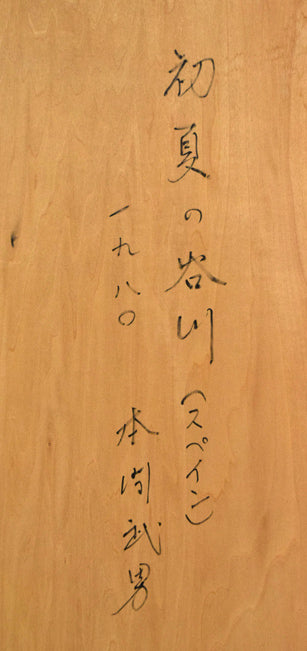 初夏の谷川（スペイン）
一九八〇　本間武男